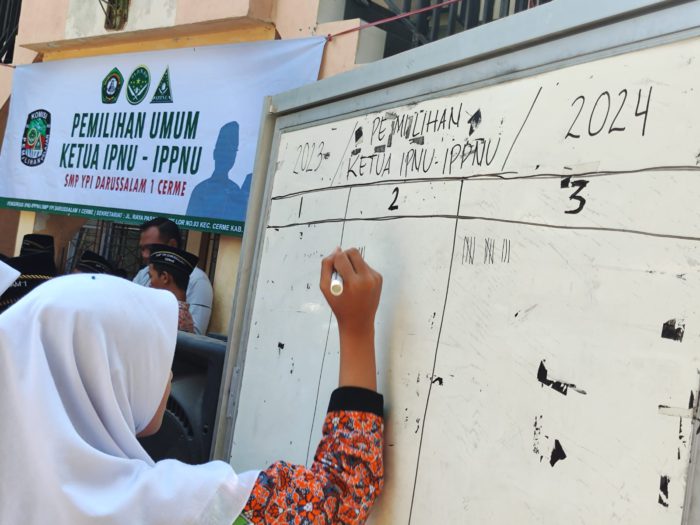 PEMILIHAN UMUM
KETUA IPNU - IPPNU
SMP YPI DARUSSALAM 1 CERME
KOMISI
2023 / PEMILIHAN KETUA IPNU-IPPNU / 2024
1 2 3